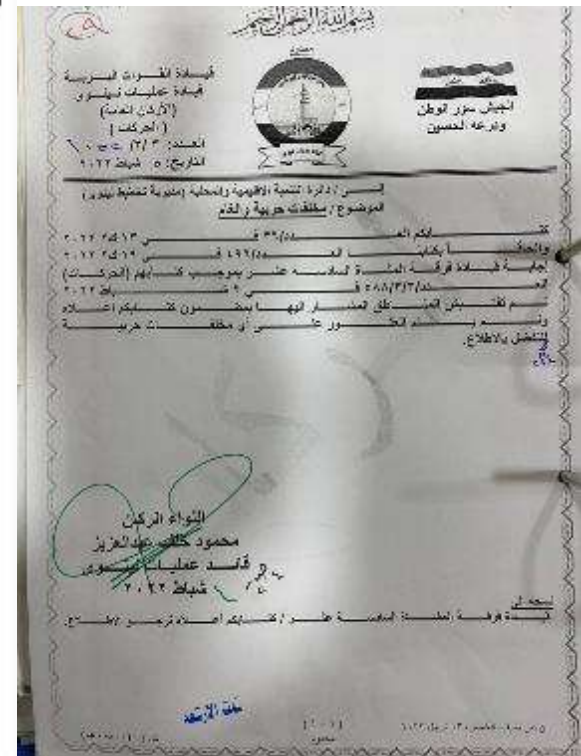 بسم الله الرحمن الرحيم
محدود
قيادة القوات البرية
قيادة عمليات نينوى
(الأركان العامة)
( الحركات )
العدد: ٣/٣/
التاريخ: ٥ شباط ٢٠٢٢
الجيش سور الوطن
ودرعه الحصين
إلــى / دائرة التنمية الاقليمية والمحلية (مديرية تخطيط نينوى)
الموضوع / مخلفات حربية والغام
كتــابكم العــدد/٣٩ فــي ١٣ ك٢ ٢٠٢٢
والحاقــاً بكتابنــا العــدد/٤٩٦ فــي ١٩ ك٢ ٢٠٢٢
إجابة قيادة فرقة المشاة السادسة عشر بموجب كتابهم (الحركات)
العــدد/٣/٣/٥٨٨ فــي ٢ شباط ٢٠٢٢
تــم تفتيش المناطق المشار اليها بمضمون كتابكم اعلاه
ولــم يــتم العثــور علــى أي مخلفــات حربيــة
للتفضل بالاطلاع.
اللواء الركن
محمود خلف عبدالعزيز
قائد عمليات نينوى
شباط ٢٠٢٢
نسخه الى
قيادة فرقة المشاة السادسة عشر / كتابكم أعلاه نرجو الاطلاع.
(١-١)
محدود